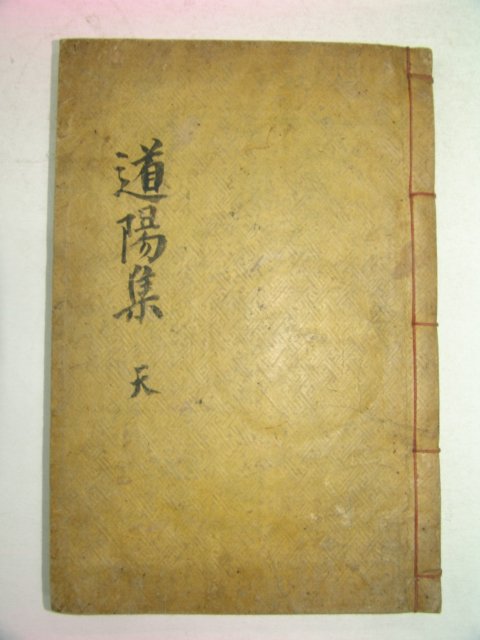 道陽集
天